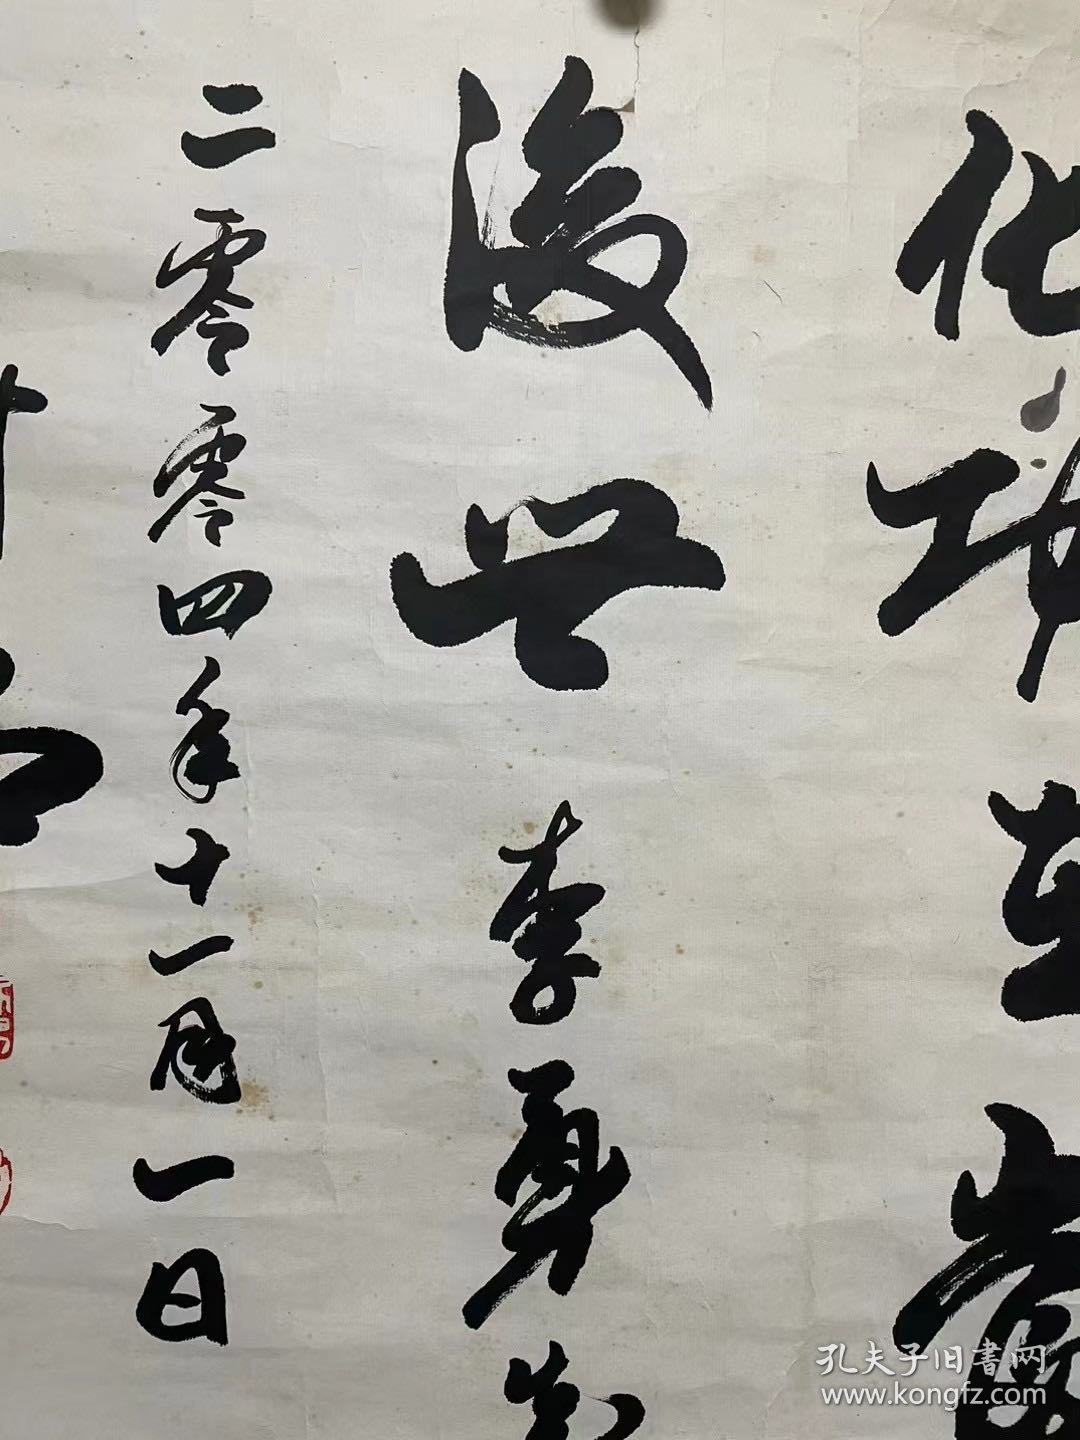 化功在當
後世 李勇先
二零零四年十一月一日
孔夫子旧書网
www.kongfz.com